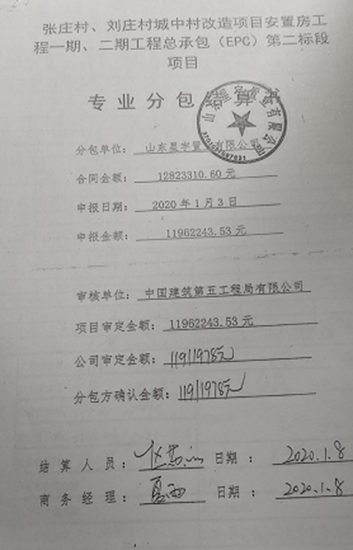 张庄村、刘庄村城中村改造项目安置房工
程一期、二期工程总承包（EPC）第二标段
项目
专业分包结算
分包单位：山东星宇有限公司
合同金额：12823310.60元
申报日期：2020年1月3日
申报金额：11962243.53元
审核单位：中国建筑第五工程局有限公司
项目审定金额：11962243.53元
公司审定金额：11911978元
分包方确认金额：11911978元
结算人员：日期：2020.1.8
商务经理：日期：2020.1.8